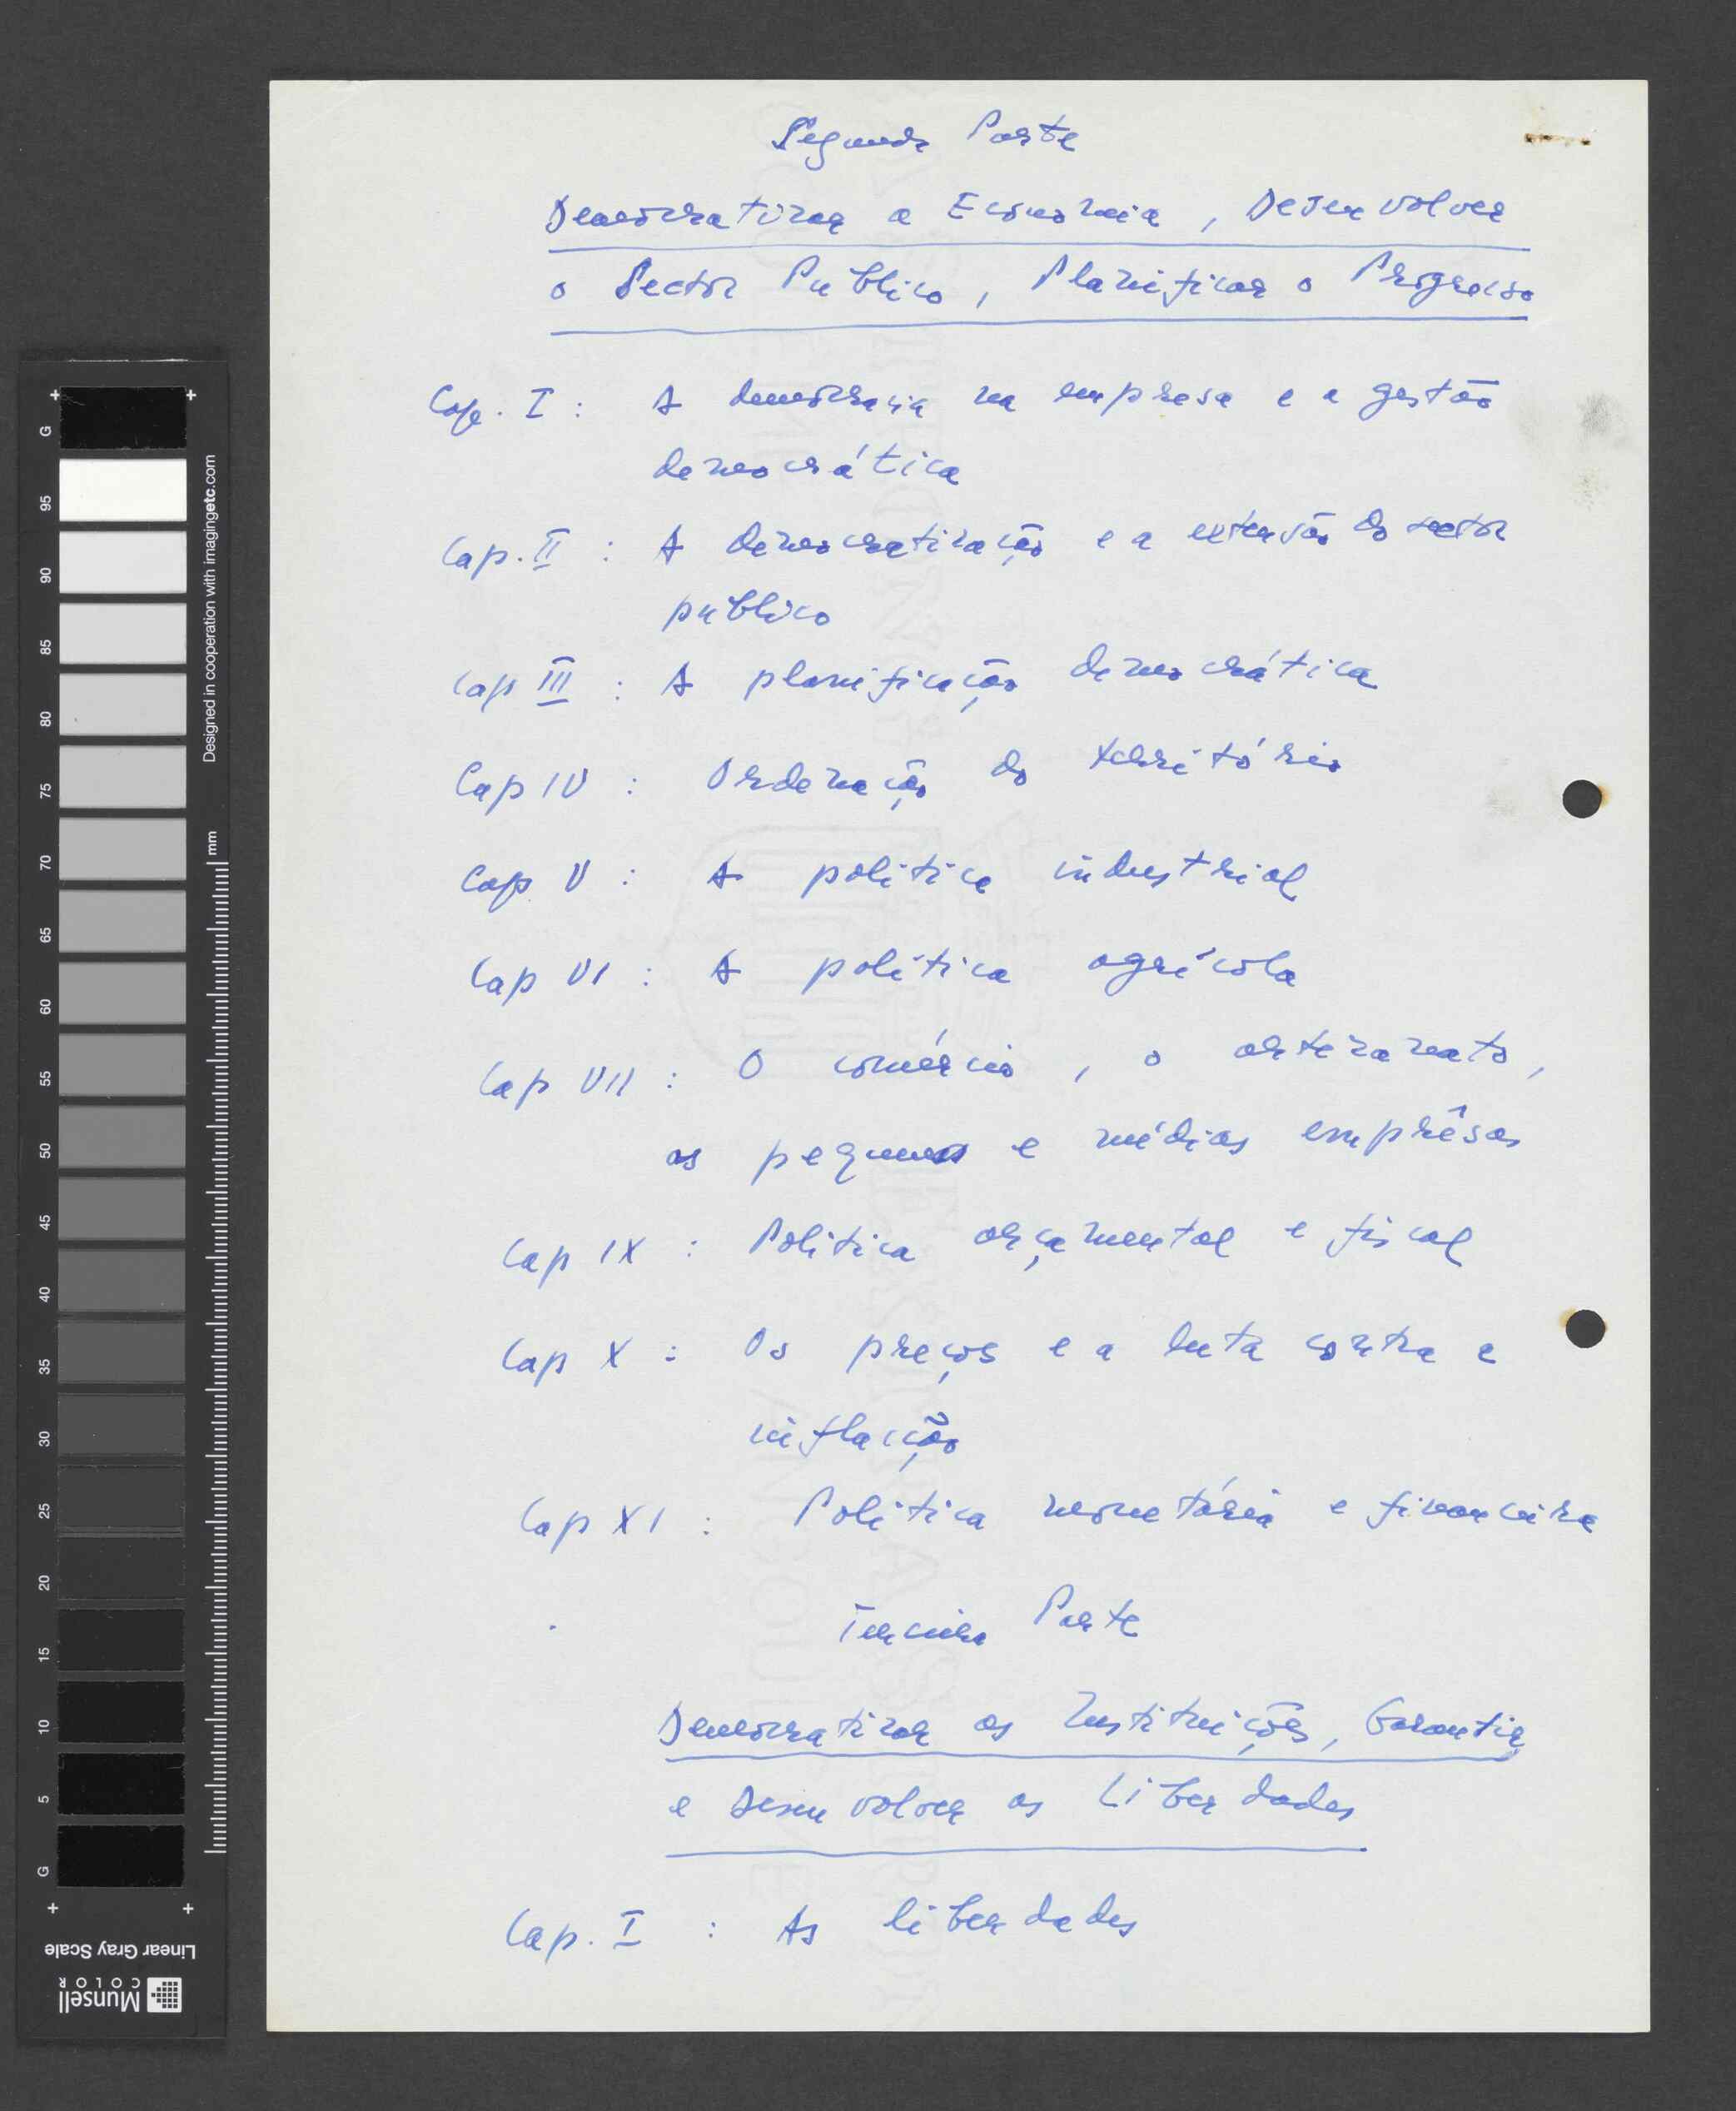 Segunda Parte
Democratizar a Economia, Desenvolver
o Sector Publico, Planificar o Progresso
Cap. I : A democracia na empresa e a gestão
democrática
Cap. II : A democratização e a extensão do sector
público
Cap III : A planificação democrática
Cap IV : Ordenação do território
Cap V : A politica industrial
Cap VI : A política agrícola
Cap VII : O comércio, o artezanato,
as pequenas e médias emprêsas
Cap IX : Politica orçamental e fiscal
Cap X : Os preços e a luta contra a
inflacção
Cap XI : Politica monetária e financeira
Terceira Parte
Democratizar as Instituições, Garantir
e Desenvolver as Liberdades
Cap. I : As liberdades
G
95
90
85
80
75
70
65
60
55
50
45
40
35
30
25
20
15
10
5
G
Designed in cooperation with imagingetc.com
mm
Linear Gray Scale
Munsell
COLOR